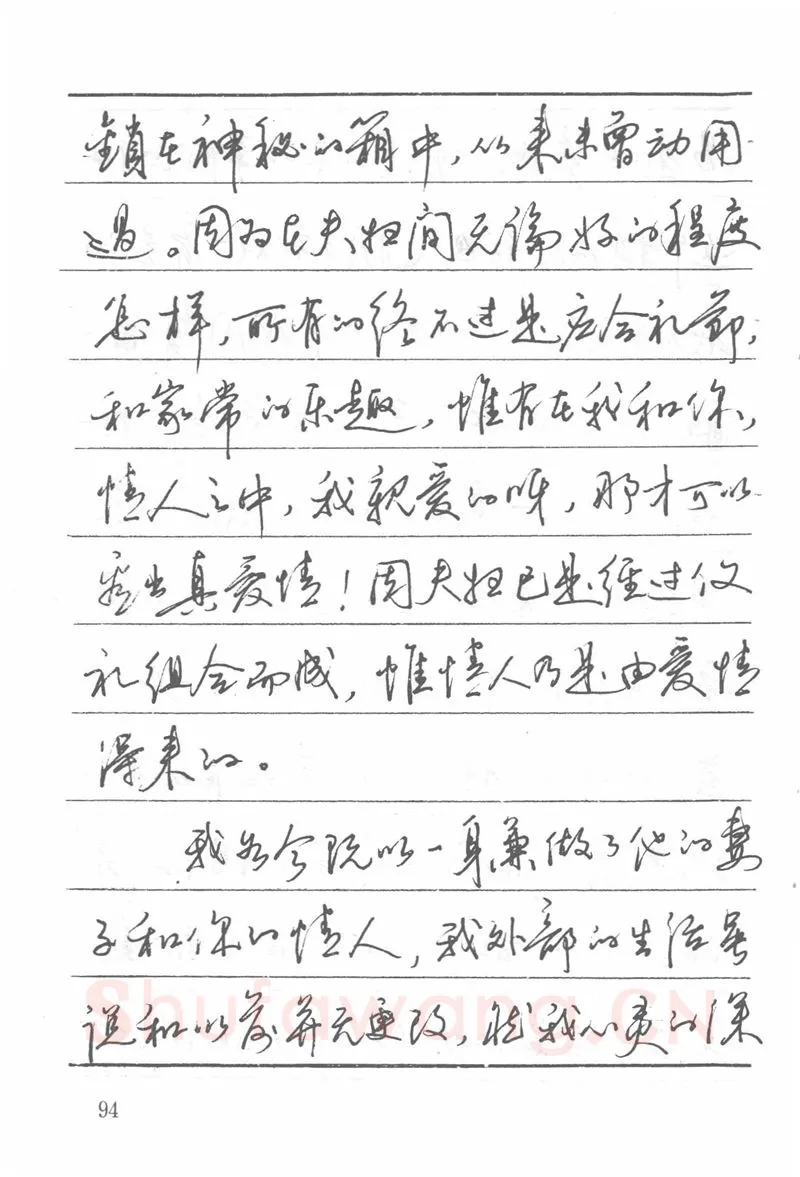 鎖在神秘的箱中，从来未曾动用
过。因为在夫妇间无論好的程度
怎样，所有的终不过是应合礼節，
和家常的乐趣，惟有在我和你，
情人之中，我親爱的呀，那才可以
看出真爱情！因夫妇已是经过仪
礼组合而成，惟情人乃是由爱情
得来的。
我如今既以一身兼做了他的妻
子和你的情人，我外部的生活虽
说和以前并无更改，然我心灵的深
Shufawang.CN
94